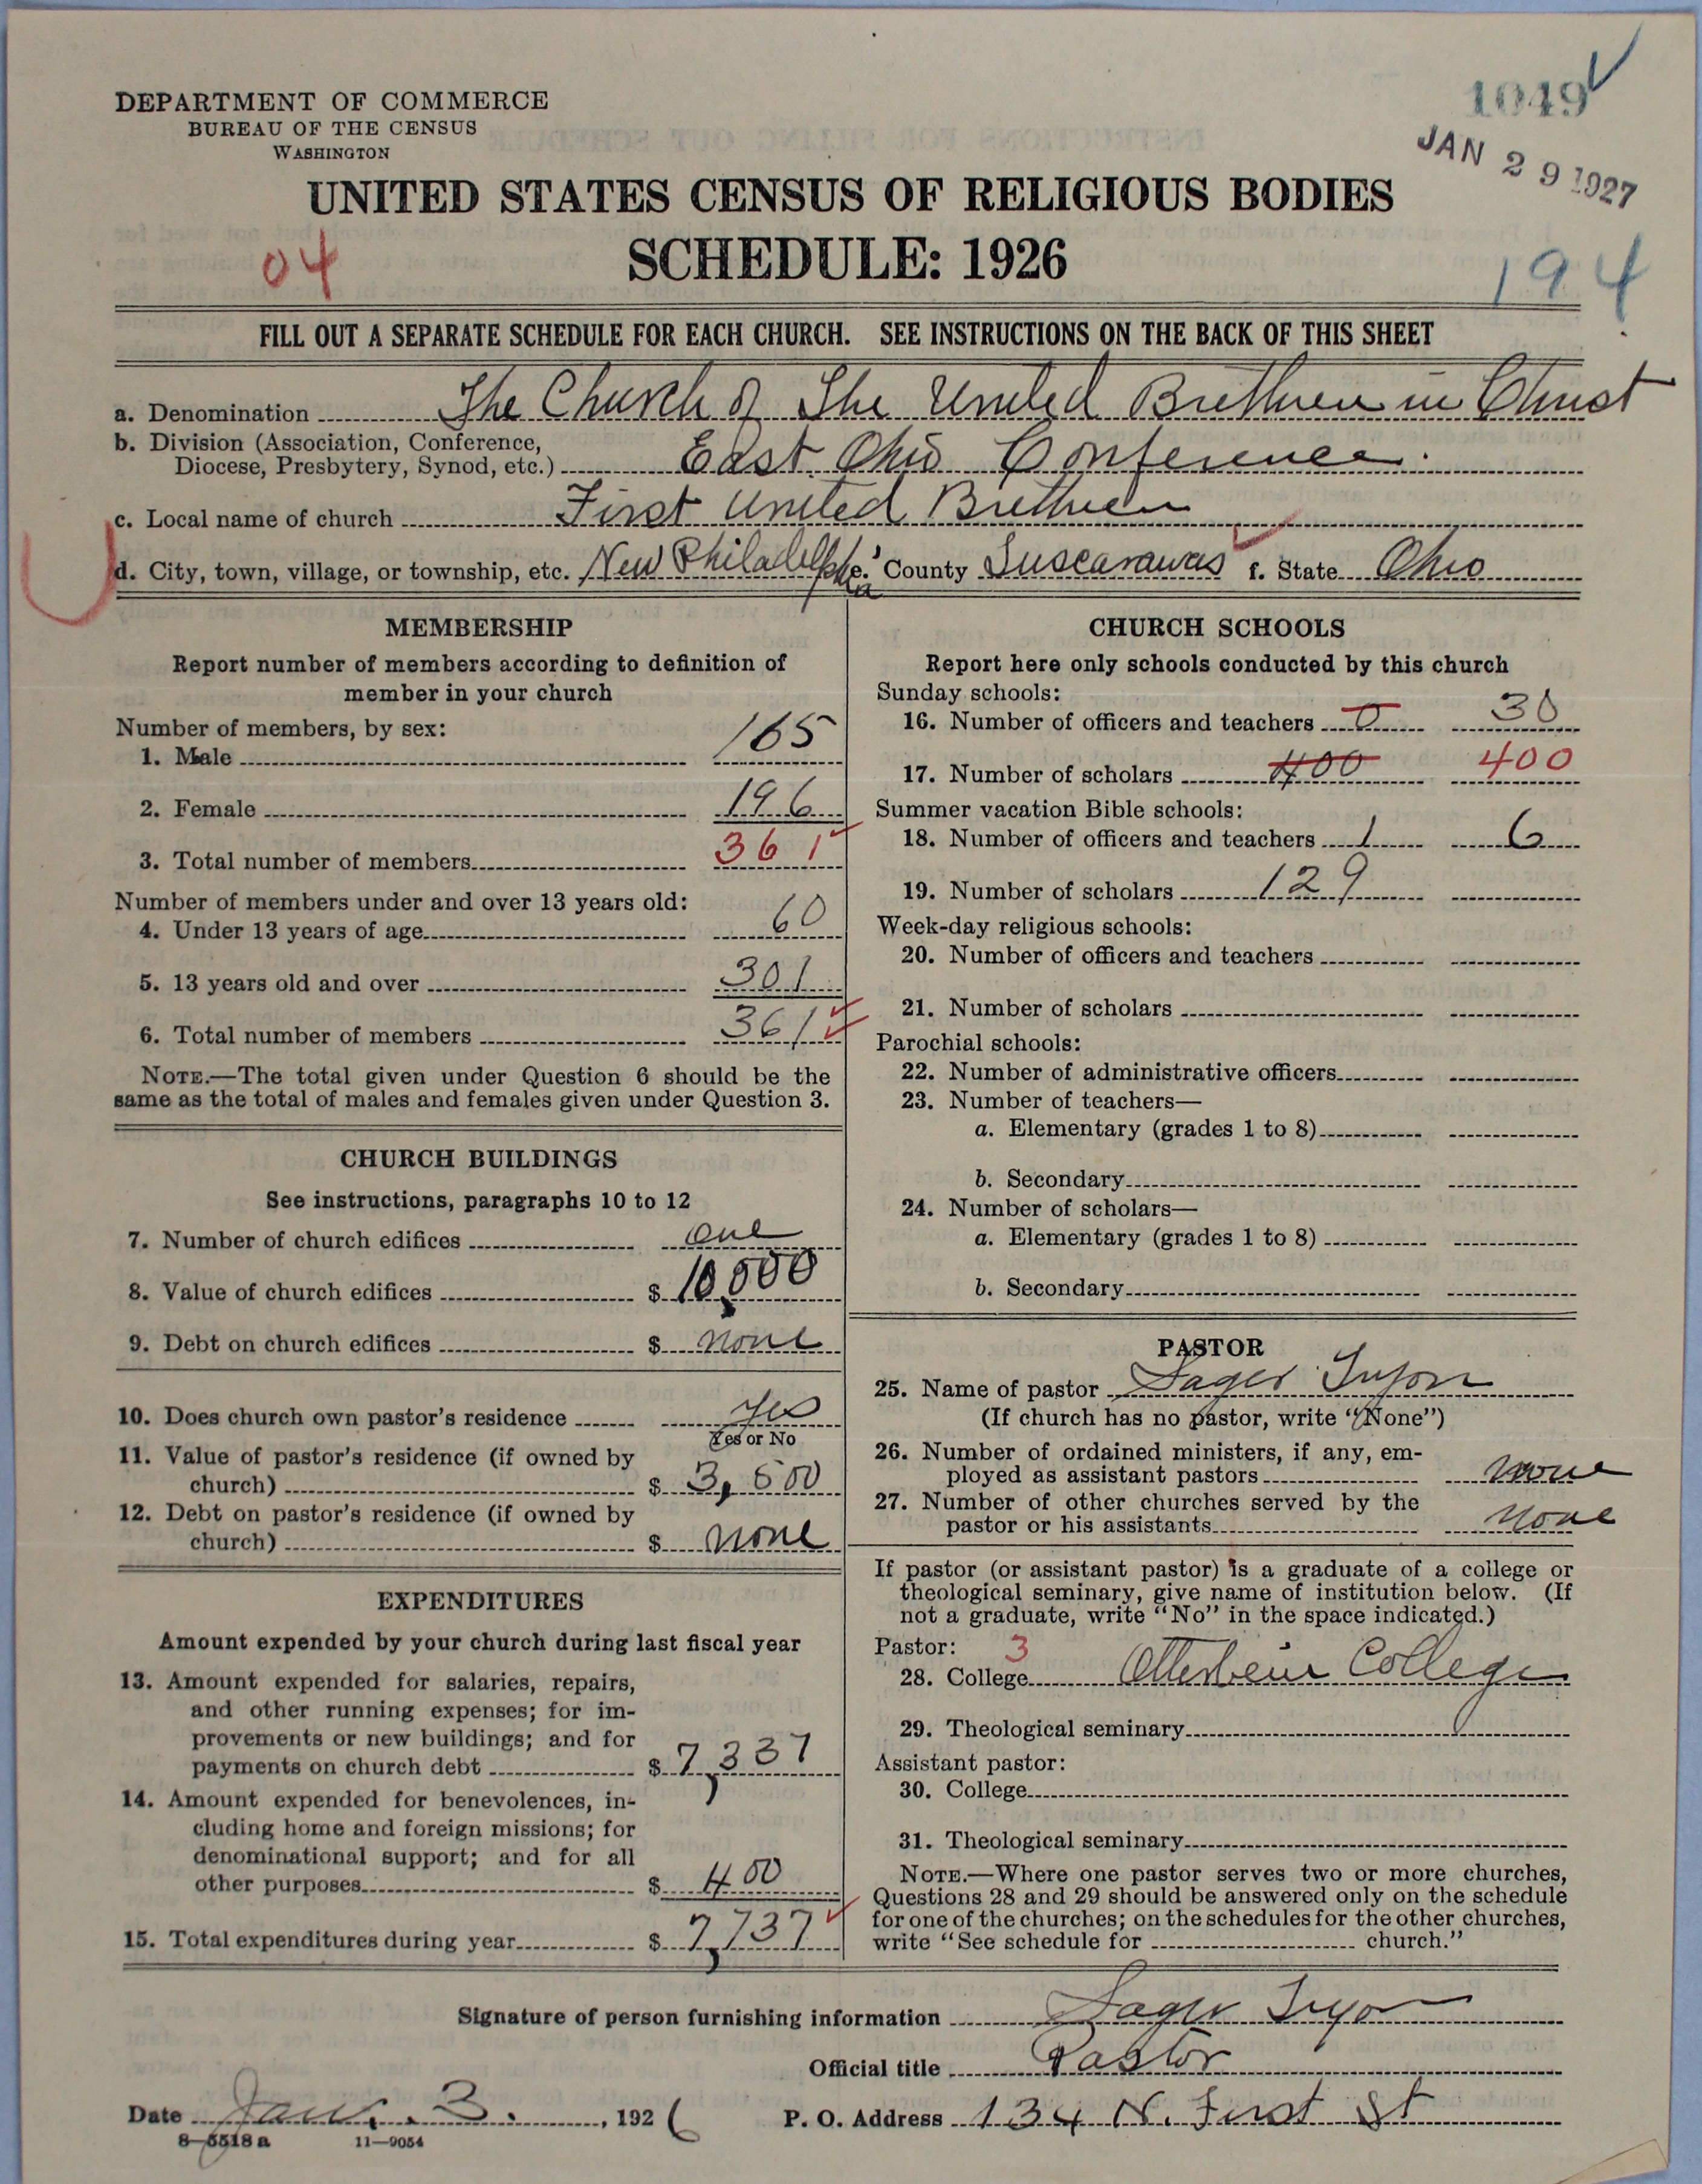 1049
DEPARTMENT OF COMMERCE
BUREAU OF THE CENSUS
WASHINGTON
JAN 29 1927
UNITED STATES CENSUS OF RELIGIOUS BODIES
SCHEDULE: 1926
04
194
FILL OUT A SEPARATE SCHEDULE FOR EACH CHURCH. SEE INSTRUCTIONS ON THE BACK OF THIS SHEET
a. Denomination The Church of The United Brethren in Christ
b. Division (Association, Conference,
Diocese, Presbytery, Synod, etc.) East Ohio Conference.
c. Local name of church First United Brethren
d. City, town, village, or township, etc. New Philadelphia e. County Tuscarawas f. State Ohio
MEMBERSHIP
Report number of members according to definition of
member in your church
Number of members, by sex:
1. Male 165
2. Female 196
3. Total number of members 361
Number of members under and over 13 years old:
4. Under 13 years of age 60
5. 13 years old and over 301
6. Total number of members 361
NOTE.—The total given under Question 6 should be the
same as the total of males and females given under Question 3.
CHURCH BUILDINGS
See instructions, paragraphs 10 to 12
7. Number of church edifices one
8. Value of church edifices $ 10,000
9. Debt on church edifices $ none
10. Does church own pastor's residence yes
Yes or No
11. Value of pastor's residence (if owned by
church) $ 3,500
12. Debt on pastor's residence (if owned by
church) $ none
EXPENDITURES
Amount expended by your church during last fiscal year
13. Amount expended for salaries, repairs,
and other running expenses; for im-
provements or new buildings; and for
payments on church debt $ 7,337
14. Amount expended for benevolences, in-
cluding home and foreign missions; for
denominational support; and for all
other purposes $ 400
15. Total expenditures during year $ 7,737
CHURCH SCHOOLS
Report here only schools conducted by this church
Sunday schools:
16. Number of officers and teachers 0 30
17. Number of scholars 400 400
Summer vacation Bible schools:
18. Number of officers and teachers 1 6
19. Number of scholars 129
Week-day religious schools:
20. Number of officers and teachers
21. Number of scholars
Parochial schools:
22. Number of administrative officers
23. Number of teachers—
a. Elementary (grades 1 to 8)
b. Secondary
24. Number of scholars—
a. Elementary (grades 1 to 8)
b. Secondary
PASTOR
25. Name of pastor Sager Tryon
(If church has no pastor, write "None")
26. Number of ordained ministers, if any, em-
ployed as assistant pastors none
27. Number of other churches served by the
pastor or his assistants none
If pastor (or assistant pastor) is a graduate of a college or
theological seminary, give name of institution below. (If
not a graduate, write "No" in the space indicated.)
Pastor: 3
28. College Otterbein College
29. Theological seminary
Assistant pastor:
30. College
31. Theological seminary
NOTE.—Where one pastor serves two or more churches,
Questions 28 and 29 should be answered only on the schedule
for one of the churches; on the schedules for the other churches,
write "See schedule for church."
Signature of person furnishing information Sager Tryon
Official title Pastor
Date Jan. 3. , 1926 P. O. Address 134 N. First St
8—5518 a 11—9054